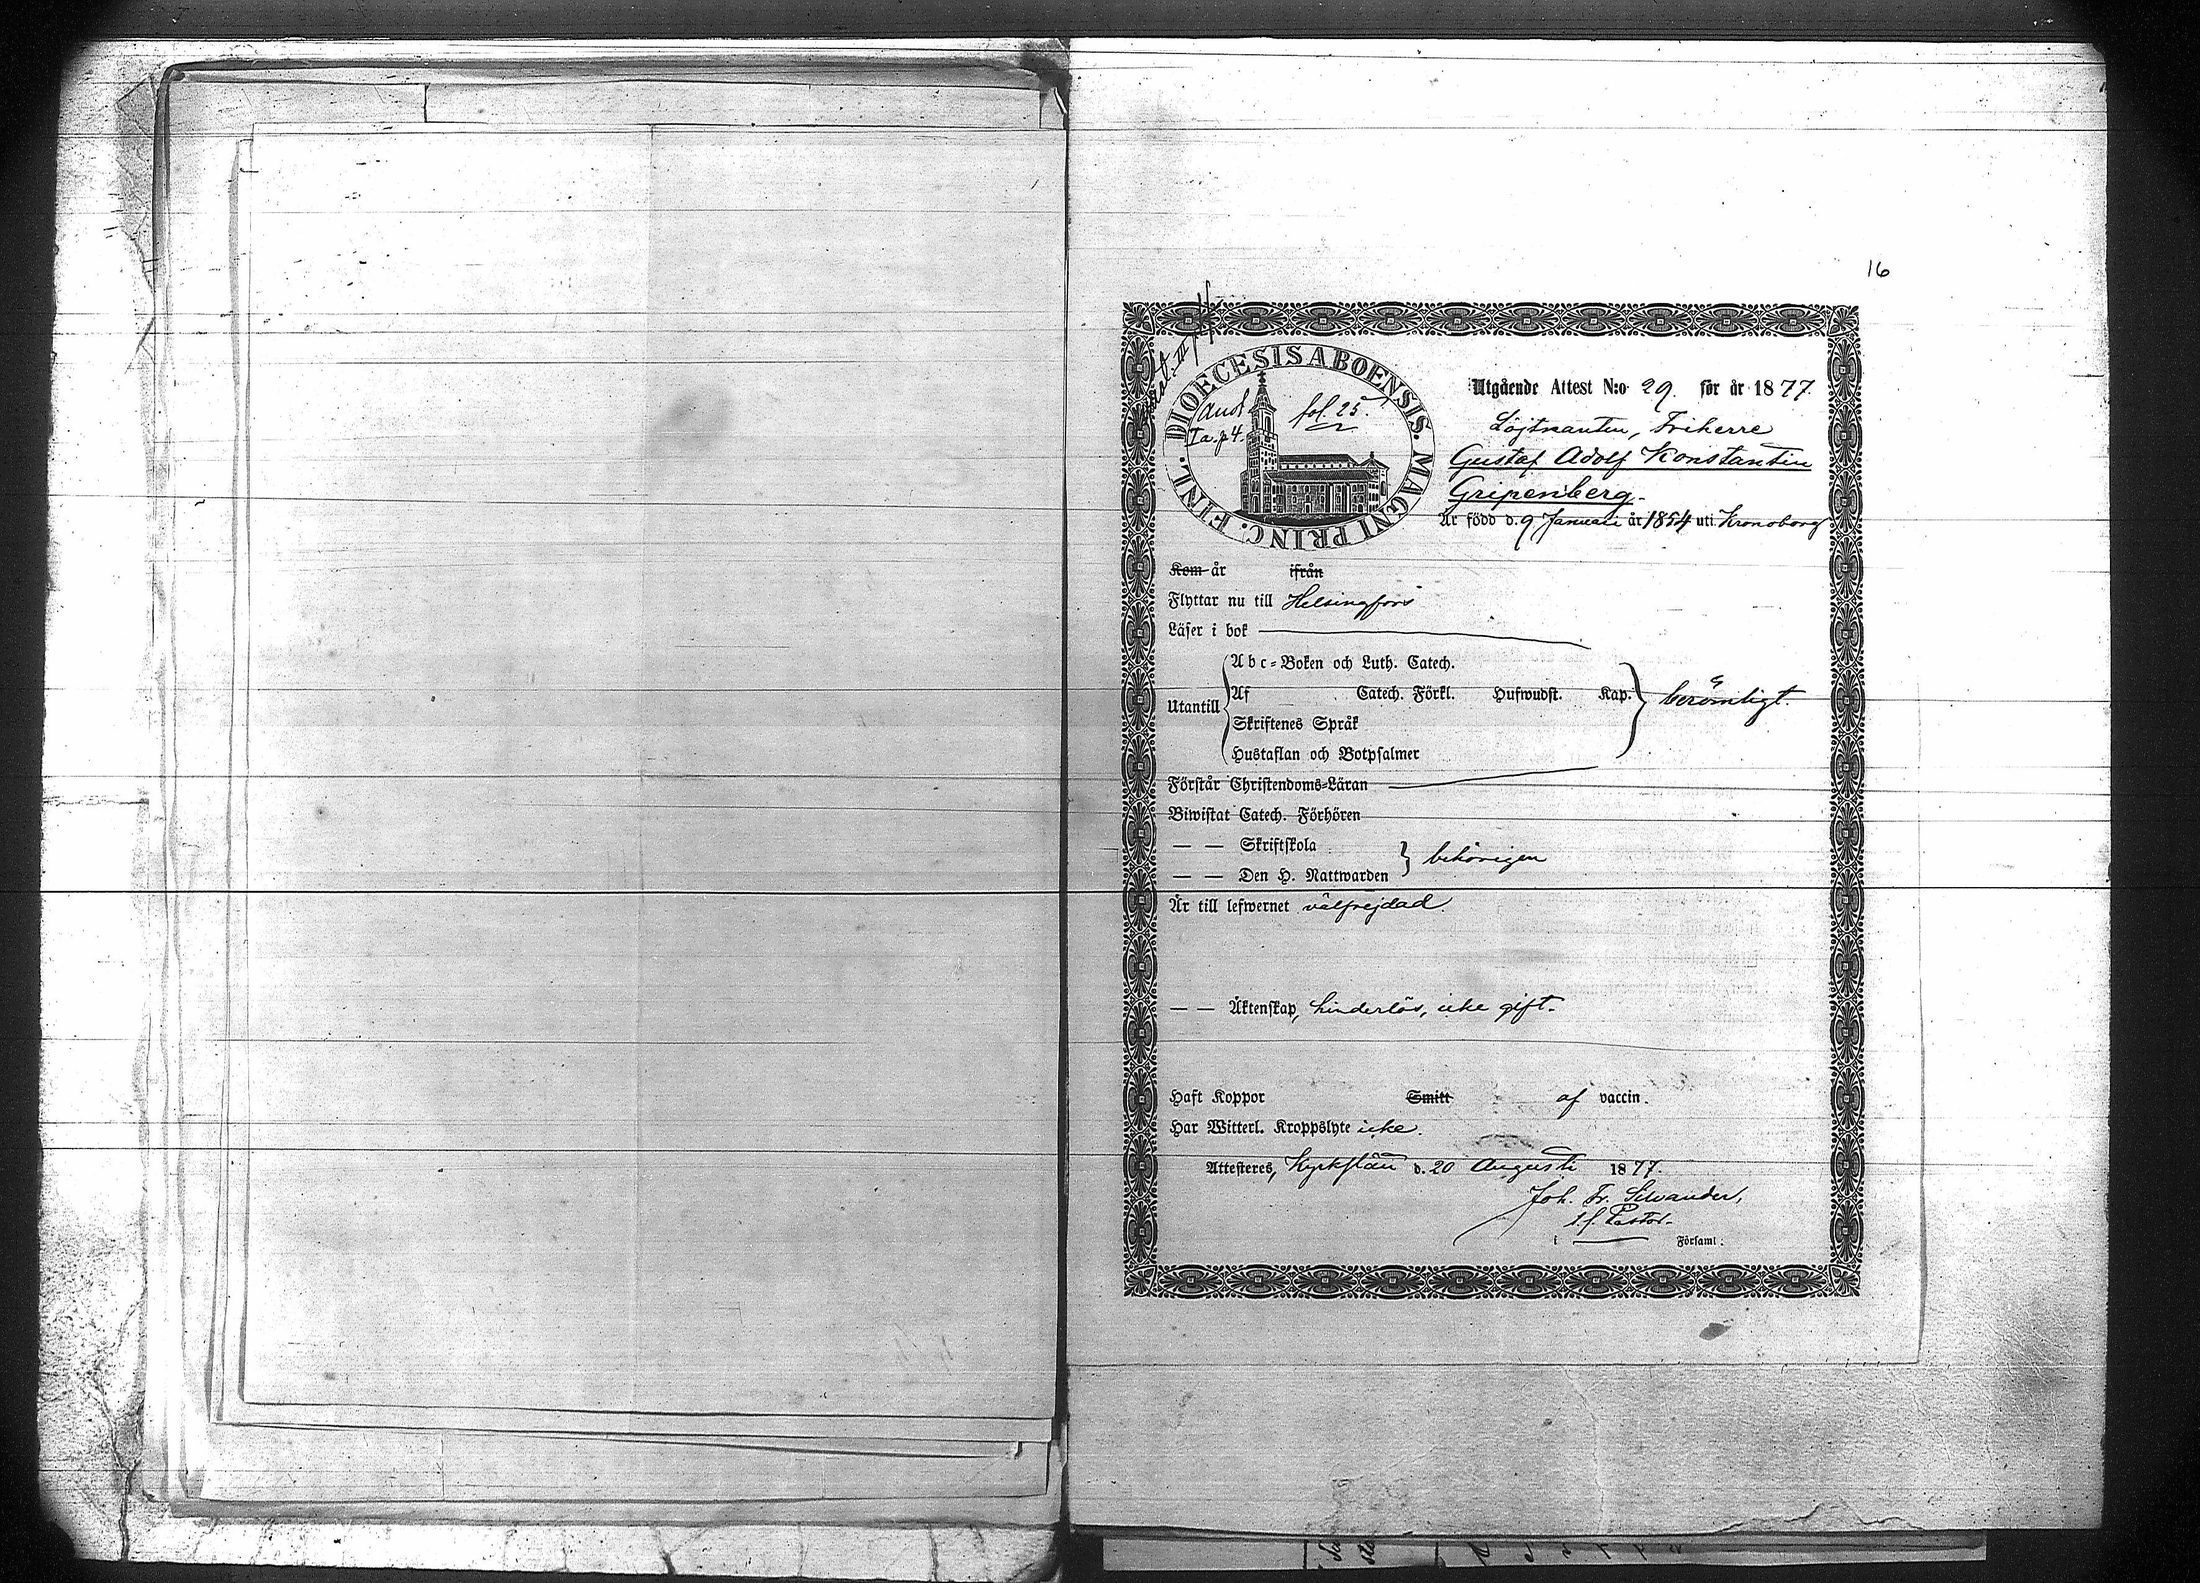 16
DIOECESIS ABOENSIS. MAGNI PRINC. FINL.
fol. 25.
Ia. p 4.
Utgående Attest N:o 29. för år 1877.
Löjtnanten, Friherre
Gustaf Adolf Konstantin
Gripenberg.
Är född d. 9 Januari år 1854 uti Kronoborg
Kom år ifrån
Flyttar nu till Helsingfors
Läser i bok
Abc-Boken och Luth. Catech.
Utantill Af Catech. Förkl. Hufwudst. Kap. berömligt.
Skriftenes Språk
Hustaflan och Botpsalmer
Förstår Christendoms-Läran
Biwistat Catech. Förhören
— — Skriftskola
behörigen
— — Den H. Nattwarden
Är till lefwernet välfrejdad.
— — Äktenskap, hinderlös, icke gift.
Haft Koppor Smitt af vaccin.
Har Witterl. Kroppslyte icke.
Attesteres, Kyrkslätt d. 20 Augusti 1877.
Joh. Fr.
Pastor.
i Församl.